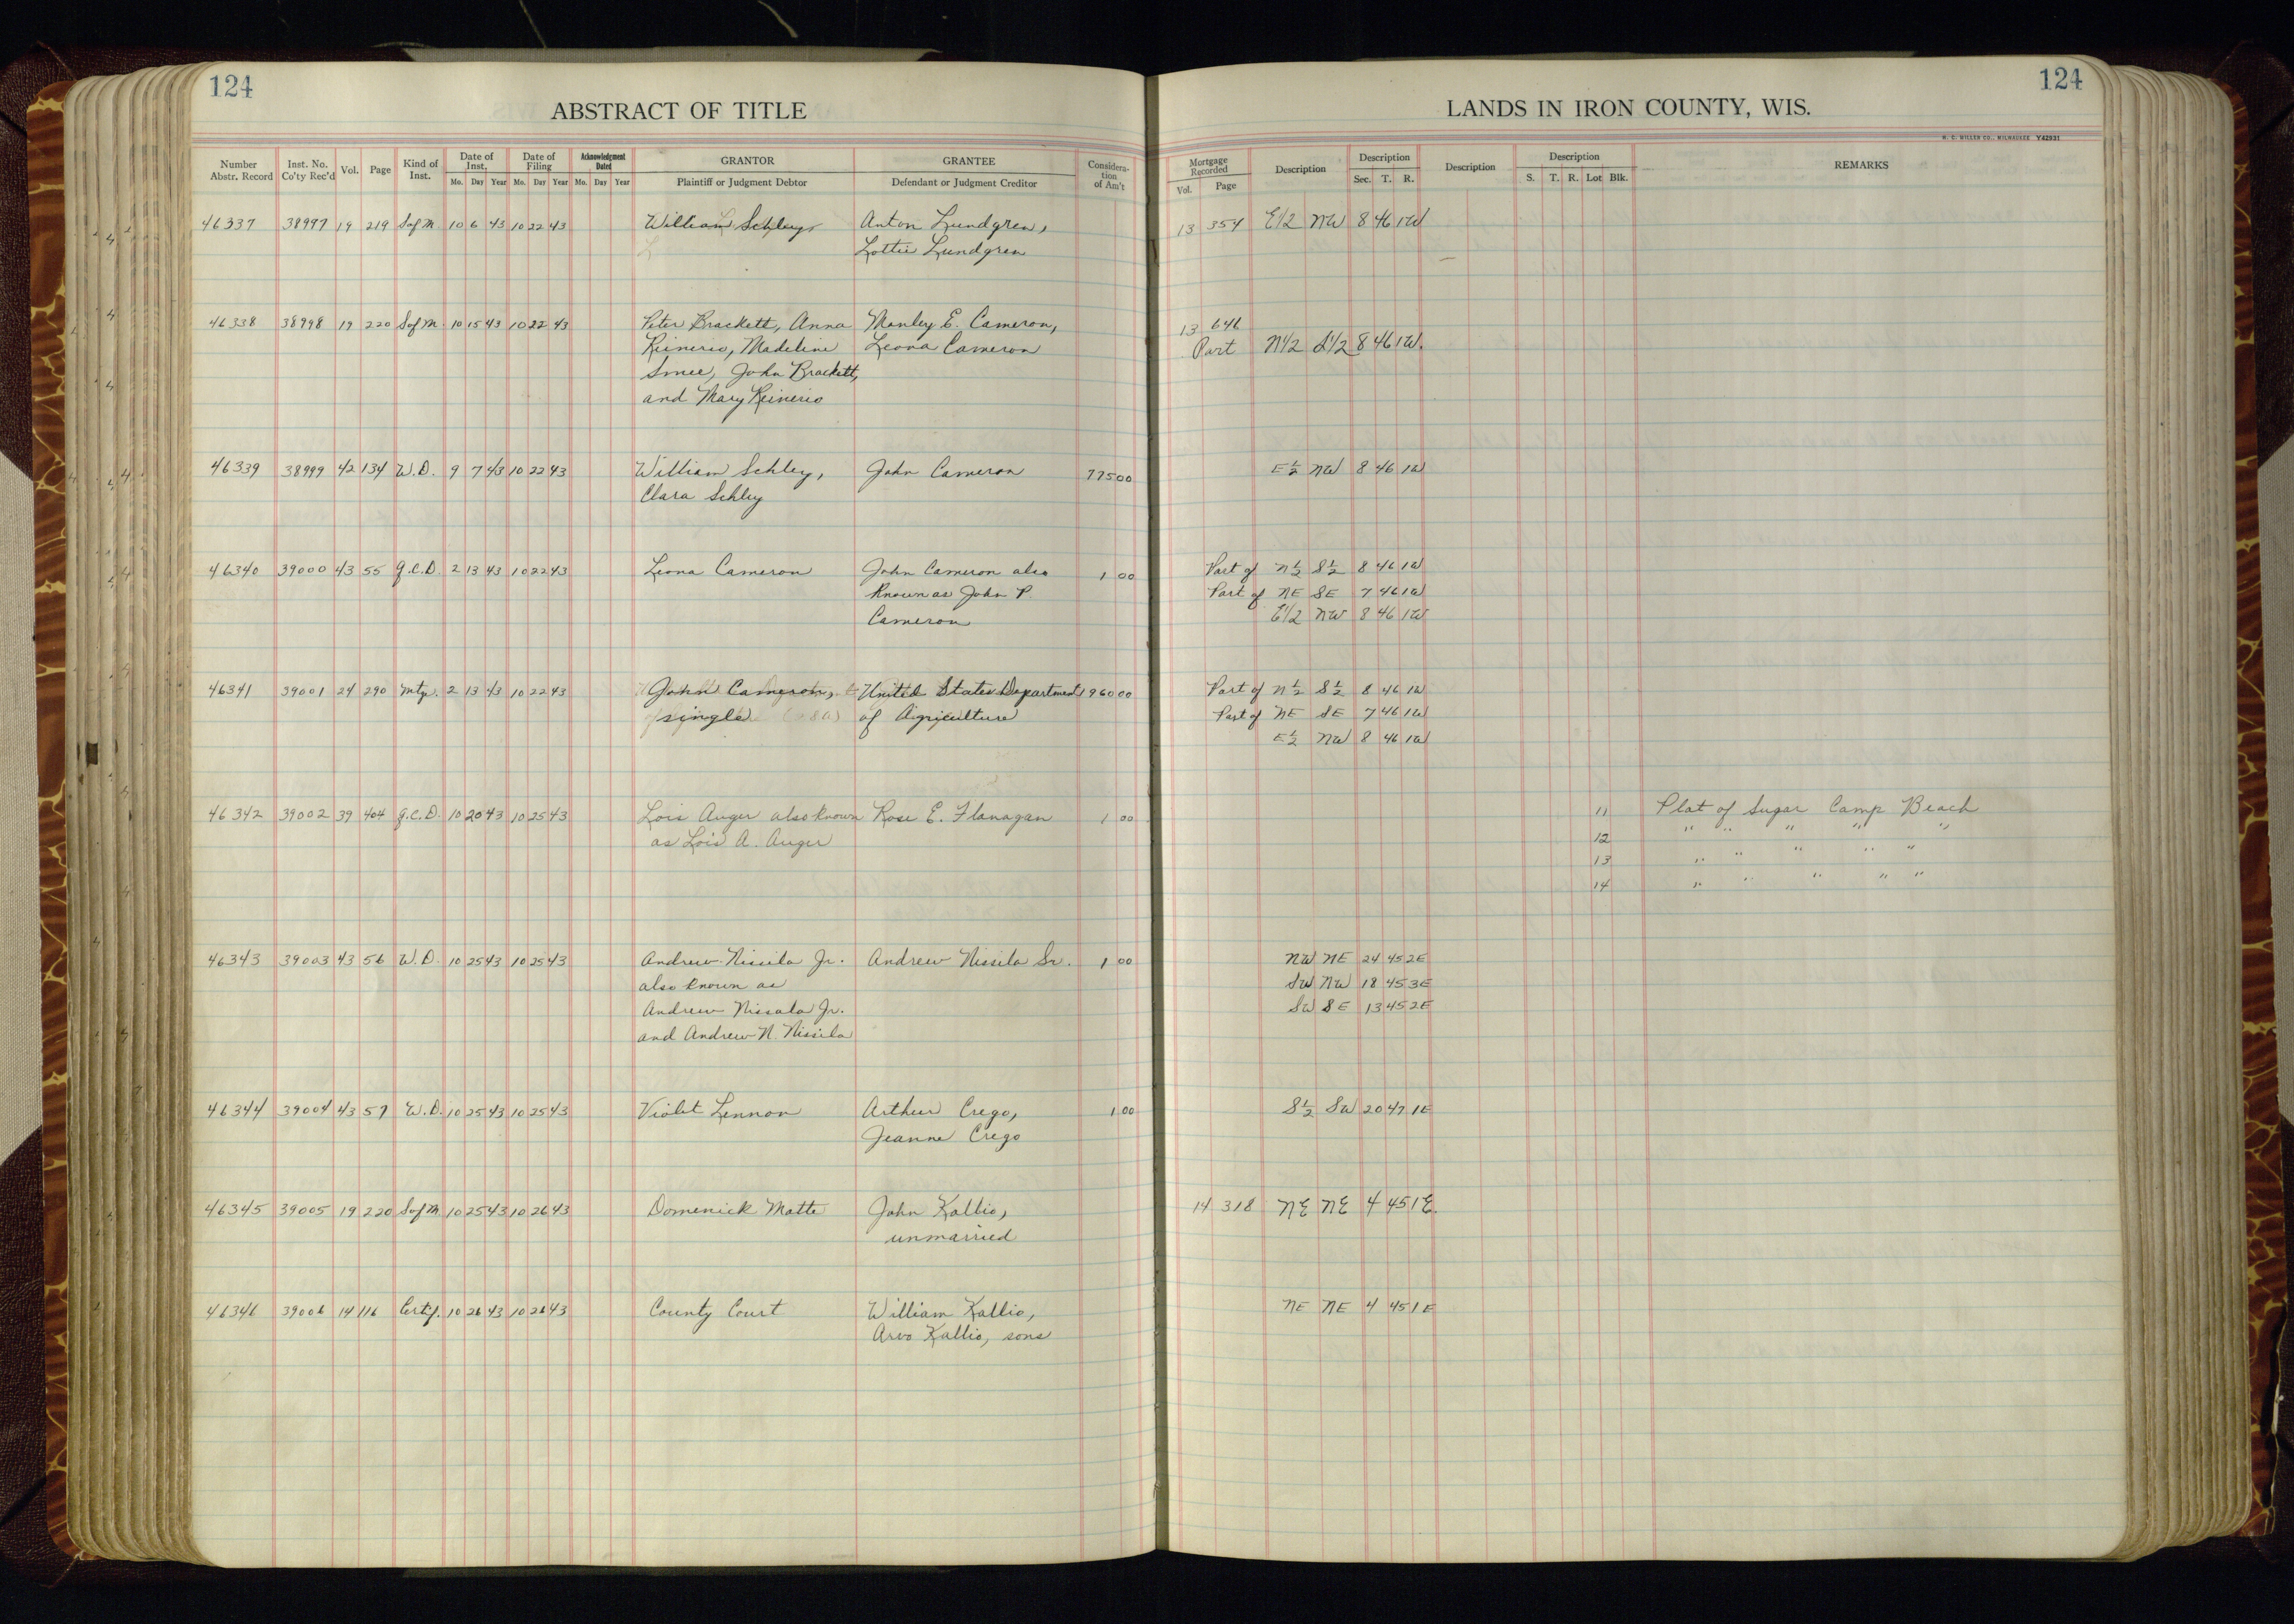 124
ABSTRACT OF TITLE
LANDS IN IRON COUNTY, WIS.
124
H. C. MILLER CO., MILWAUKEE Y42931
Number Abstr. Record Inst. No. Co'ty Rec'd Vol. Page Kind of Inst. Date of Inst. Mo. Day Year Date of Filing Mo. Day Year Acknowledgment Dated Mo. Day Year GRANTOR Plaintiff or Judgment Debtor GRANTEE Defendant or Judgment Creditor Considera-tion of Am't Mortgage Recorded Vol. Page Description Description Sec. T. R. Description Description S. T. R. Lot Blk. REMARKS
46337 38997 19 219 S of M 10 6 43 10 22 43 William Schley Anton Lundgren, 13 354 E1/2 NW 8 46 1W
Lottie Lundgren
46338 38998 19 220 S of M. 10 15 43 10 22 43 Peter Brackett, Anna Manley E. Cameron, 13 646
Reinerio, Madeline Leona Cameron Part N1/2 S1/2 8 46 1W.
Smee, John Brackett,
and Mary Reinerio
46339 38999 42 134 W.D. 9 7 43 10 22 43 William Schley, John Cameron 775 00 E½ NW 8 46 1W
Clara Schley
46340 39000 43 55 Q.C.D. 2 13 43 10 22 43 Leona Cameron John Cameron also 1 00 Part of N½ S½ 8 46 1W
known as John P. Part of NE SE 7 46 1W
Cameron E1/2 NW 8 46 1W
46341 39001 24 290 Mtg. 2 13 43 10 22 43 John Cameron, United States Department 1960 00 Part of N½ S½ 8 46 1W
single of Agriculture Part of NE SE 7 46 1W
E½ NW 8 46 1W
46342 39002 39 404 Q.C.D. 10 20 43 10 25 43 Lois Auger also known Rose E. Flanagan 1 00 11 Plat of Sugar Camp Beach
as Lois A. Auger 12 " " " " "
13 " " " " "
14 " " " " "
46343 39003 43 56 W.D. 10 25 43 10 25 43 Andrew Nissila Jr. Andrew Nissila Sr. 1 00 NW NE 24 45 2E
also known as SW NW 18 45 3E
Andrew Nissala Jr. SW SE 13 45 2E
and Andrew N. Nissila
46344 39004 43 57 W.D. 10 25 43 10 25 43 Violet Lennon Arthur Crego, 1 00 S½ SW 20 47 1E
Jeanne Crego
46345 39005 19 220 S of M 10 25 43 10 26 43 Domenick Matte John Kallio, 14 318 NE NE 4 45 1E.
unmarried
46346 39006 14 116 Certif. 10 26 43 10 26 43 County Court William Kallio, NE NE 4 45 1E
Arvo Kallio, sons